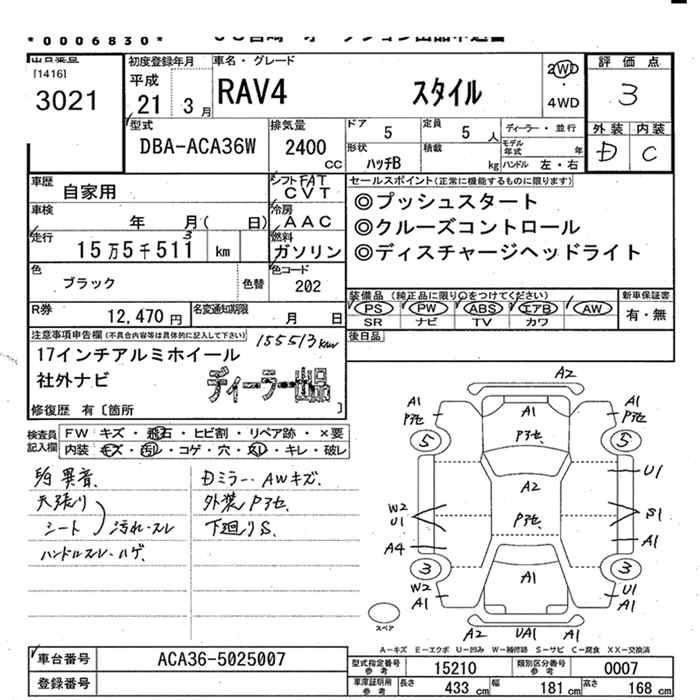 *0006830*
[1416]
3021
初度登録年月
平成
21 3月
車名・グレード
RAV4 スタイル
2WD
・
4WD
評価点
3
外装 内装
D C
型式
DBA-ACA36W
排気量
2400 CC
ドア 5
定員 5人
形状 ハッチB
積載 kg
ディーラー・並行
モデル年式 年
ハンドル 左・右
車歴 自家用
シフト FAT
CVT
車検 年 月( 日)
冷房 AAC
走行 15万5千511 km
3
燃料 ガソリン
色 ブラック
色替
色コード 202
セールスポイント(正常に機能するものに限ります)
◎プッシュスタート
◎クルーズコントロール
◎ディスチャージヘッドライト
R券 12,470円
名変通知期限 月 日
装備品(純正品に限り○をつけてください)
PS PW ABS エアB AW
SR ナビ TV カワ
新車保証書
有・無
後日品
注意事項申告欄(不具合内容等は具体的に記入して下さい)
155513km
17インチアルミホイール
社外ナビ
ディーラー出品
修復歴 有〔箇所 〕
検査員記入欄
FW キズ・飛石・ヒビ割・リペア跡・×要
内装 キズ・汚れ・コゲ・穴・スレ・キレ・破レ
異音.
天張り
シート
汚れ・スレ
ハンドルスレ・ハゲ.
Dミラー・AWキズ.
外装Pアセ.
下廻りS.
A2
A1
Pアセ
5
A1
Pアセ.
A1
Pアセ
5
A2
U1
W2
U1
Pアセ.
S1
A4
A1
3
A1
3
W2
A1
U1
A1
スペア
A2
UA1
A2
A-キズ E-エクボ U-凹み W-補修跡 S-サビ C-腐食 XX-交換済
車台番号 ACA36-5025007
登録番号
型式指定番号 参考 15210
類別区分番号 参考 0007
車庫証明用 参考
長さ 433 cm
幅 181 cm
高さ 168 cm